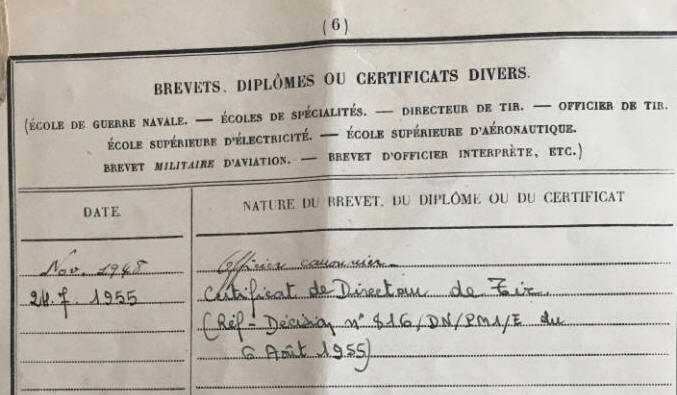 (6)
BREVETS, DIPLÔMES OU CERTIFICATS DIVERS.
(ÉCOLE DE GUERRE NAVALE. — ÉCOLES DE SPÉCIALITÉS. — DIRECTEUR DE TIR. — OFFICIER DE TIR.
ÉCOLE SUPÉRIEURE D'ÉLECTRICITÉ. — ÉCOLE SUPÉRIEURE D'AÉRONAUTIQUE.
BREVET MILITAIRE D'AVIATION. — BREVET D'OFFICIER INTERPRÈTE, ETC.)
DATE NATURE DU BREVET, DU DIPLÔME OU DU CERTIFICAT
Nov. 1948 Officier canonnier
28.7.1955 Certificat de Directeur de Tir
(Réf - Décision n° 816/DN/PM1/E du
6 Août 1955)